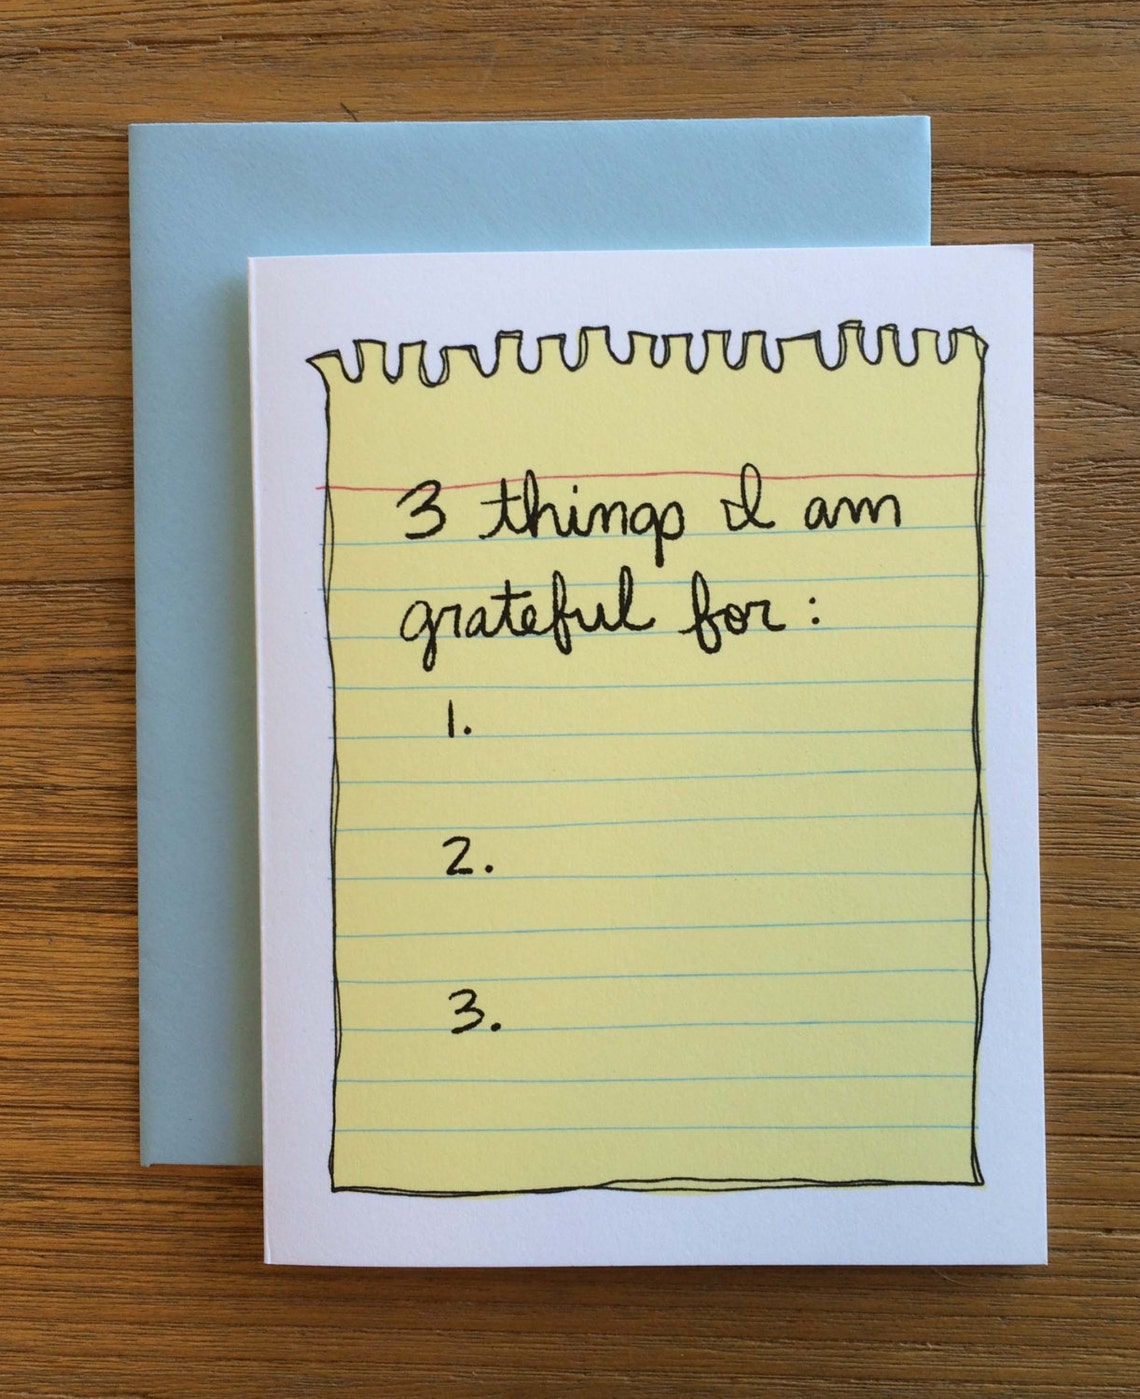 3 things I am
grateful for :
1.
2.
3.